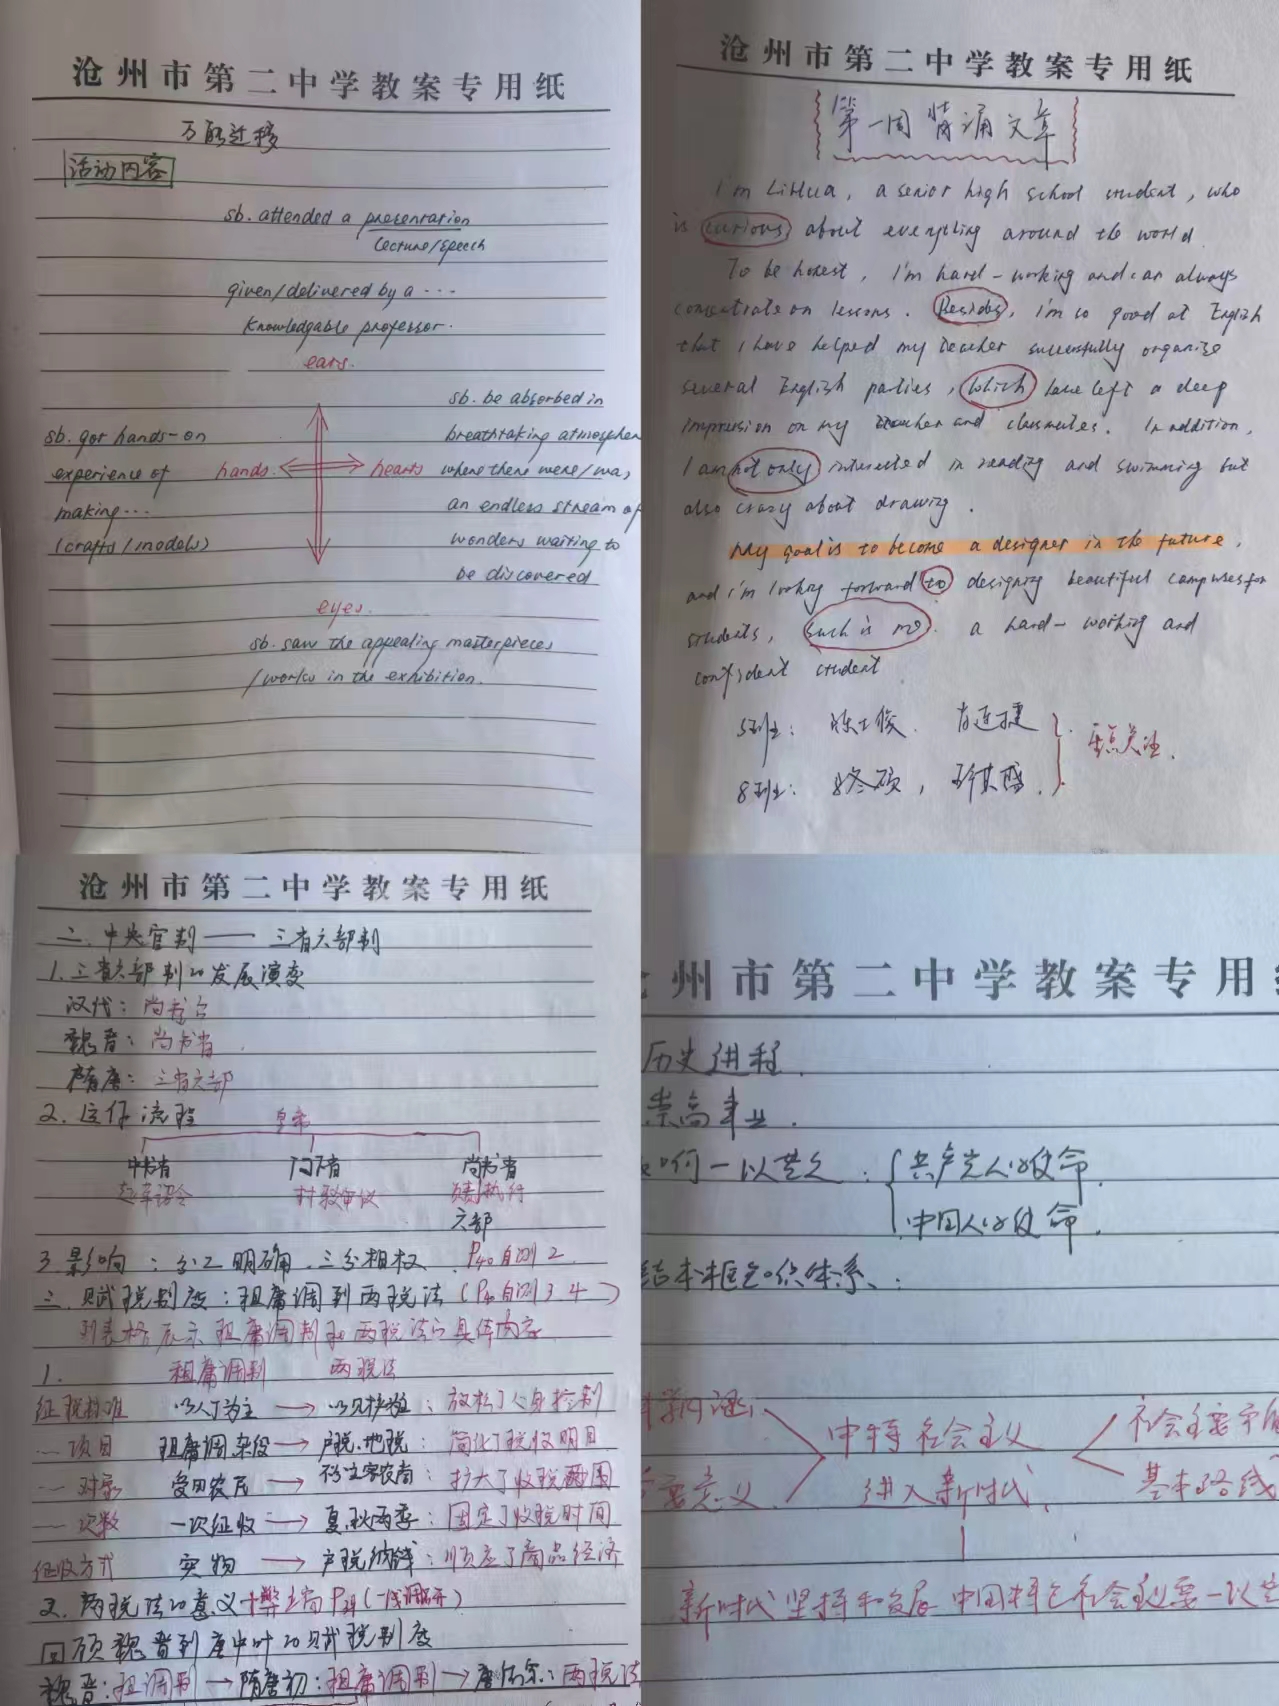 沧州市第二中学教案专用纸
万能迁移
活动内容
sb. attended a presentation
lecture/speech
given/delivered by a ...
knowledgable professor.
ears.
sb. be absorbed in
breathtaking atmospher
where there were/wa,
an endless stream of
wonders waiting to
be discovered
hearts
hands.
sb. got hands-on
experience of
making...
(crafts/models)
eyes.
sb. saw the appealing masterpieces
/works in the exhibition.
沧州市第二中学教案专用纸
第一周背诵文章
I'm LiHua, a senior high school student, who
is curious about everything around the world.
To be honest, I'm hard-working and can always
concentrate on lessons. Besides, I'm so good at English
that I have helped my teacher successfully organize
several English parties, which have left a deep
impression on my teacher and classmates. In addition,
I am not only interested in reading and swimming but
also crazy about drawing.
My goal is to become a designer in the future,
and I'm looking forward to designing beautiful campuses for
students, such is me. a hard-working and
confident student
5班:
8班:
重点关注.
沧州市第二中学教案专用纸
二、中央官制——三省六部制
1.三省六部制的发展演变
汉代：尚书台
魏晋：尚书省
隋唐：三省六部
2.运作流程
皇帝
中书省 门下省 尚书省
起草诏令 封驳审议 负责执行
六部
3.影响：分工明确、三分相权 P40自测2
三、赋税制度：租庸调到两税法（P40自测3.4）
列表格展示租庸调制和两税法的具体内容
1. 租庸调制 两税法
征税标准 以人丁为主 → 以财产为主：放松了人身控制
—项目 租庸调杂役 → 户税、地税：简化了税收明目
—对象 受田农民 → 不分主客农商：扩大了收税范围
—次数 一次征收 → 夏、秋两季：固定了收税时间
征收方式 实物 → 户税纳钱：顺应了商品经济
2.两税法的意义+弊
回顾魏晋到唐中叶的赋税制度
魏晋：租调制 → 隋唐初：租庸调制 → 唐后来：两税法
州市第二中学教案专用
历史进程.
崇高事业.
如何一以贯之：{共产党人的使命.
中国人的使命.
结本框知识体系：
科学内涵
重要意义
中特社会主义
进入新时代
社会主要矛盾
基本路线
新时代坚持和发展中国特色社会主义要一以贯